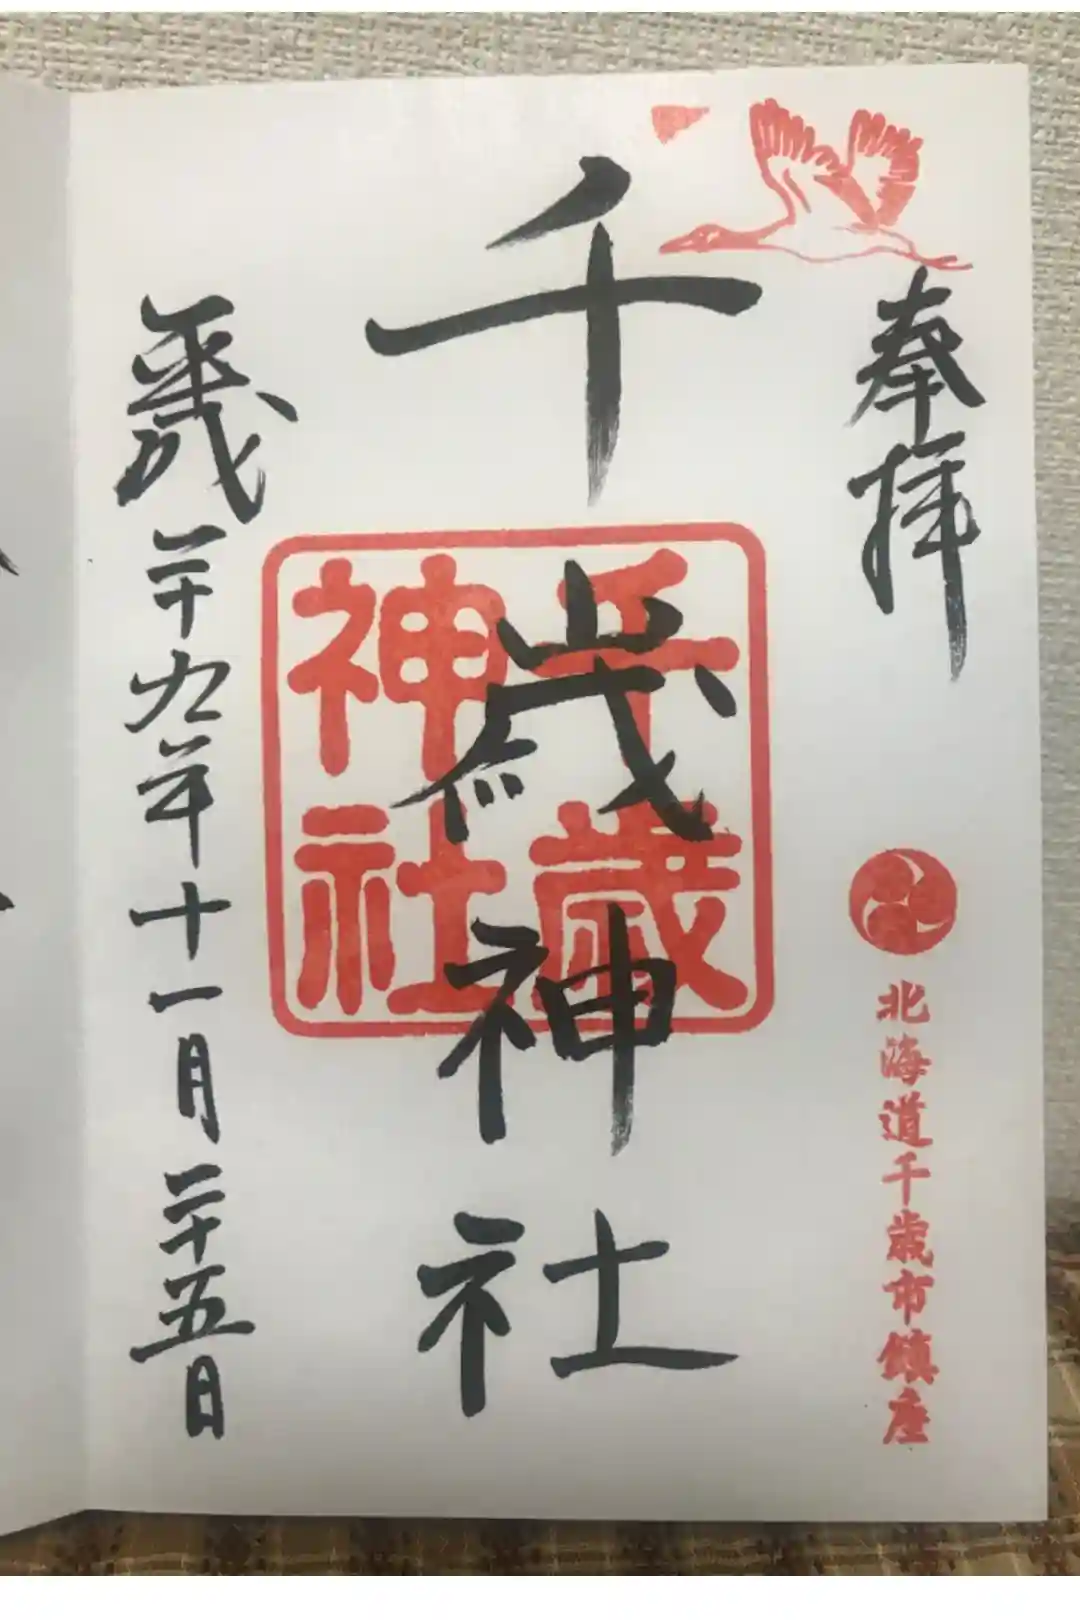 奉拝
北海道千歳市鎮座
千歳神社
千歳
神社
平成二十九年十一月二十五日